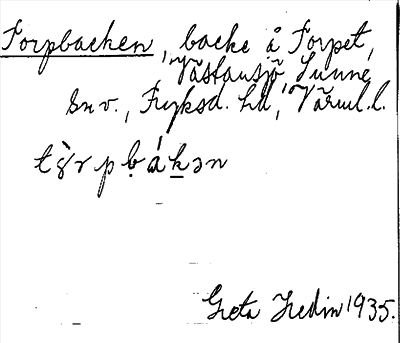 Torpbacken, backe å Torpet,
Västansjö, Sunne
sn v., Fryksd. hd, Värml. l.
tòrpbákən
Greta Hedin 1935.